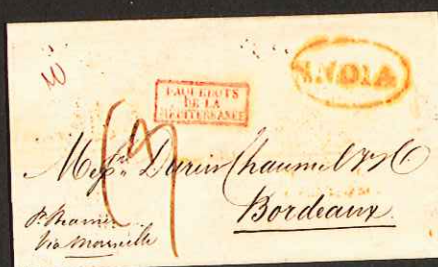 INDIA
PAQUEBOTS
DE LA
MÉDITERRANÉE
Messrs. Durin Chaumel & Co
Bordeaux
P. Steamer
Via Marseille